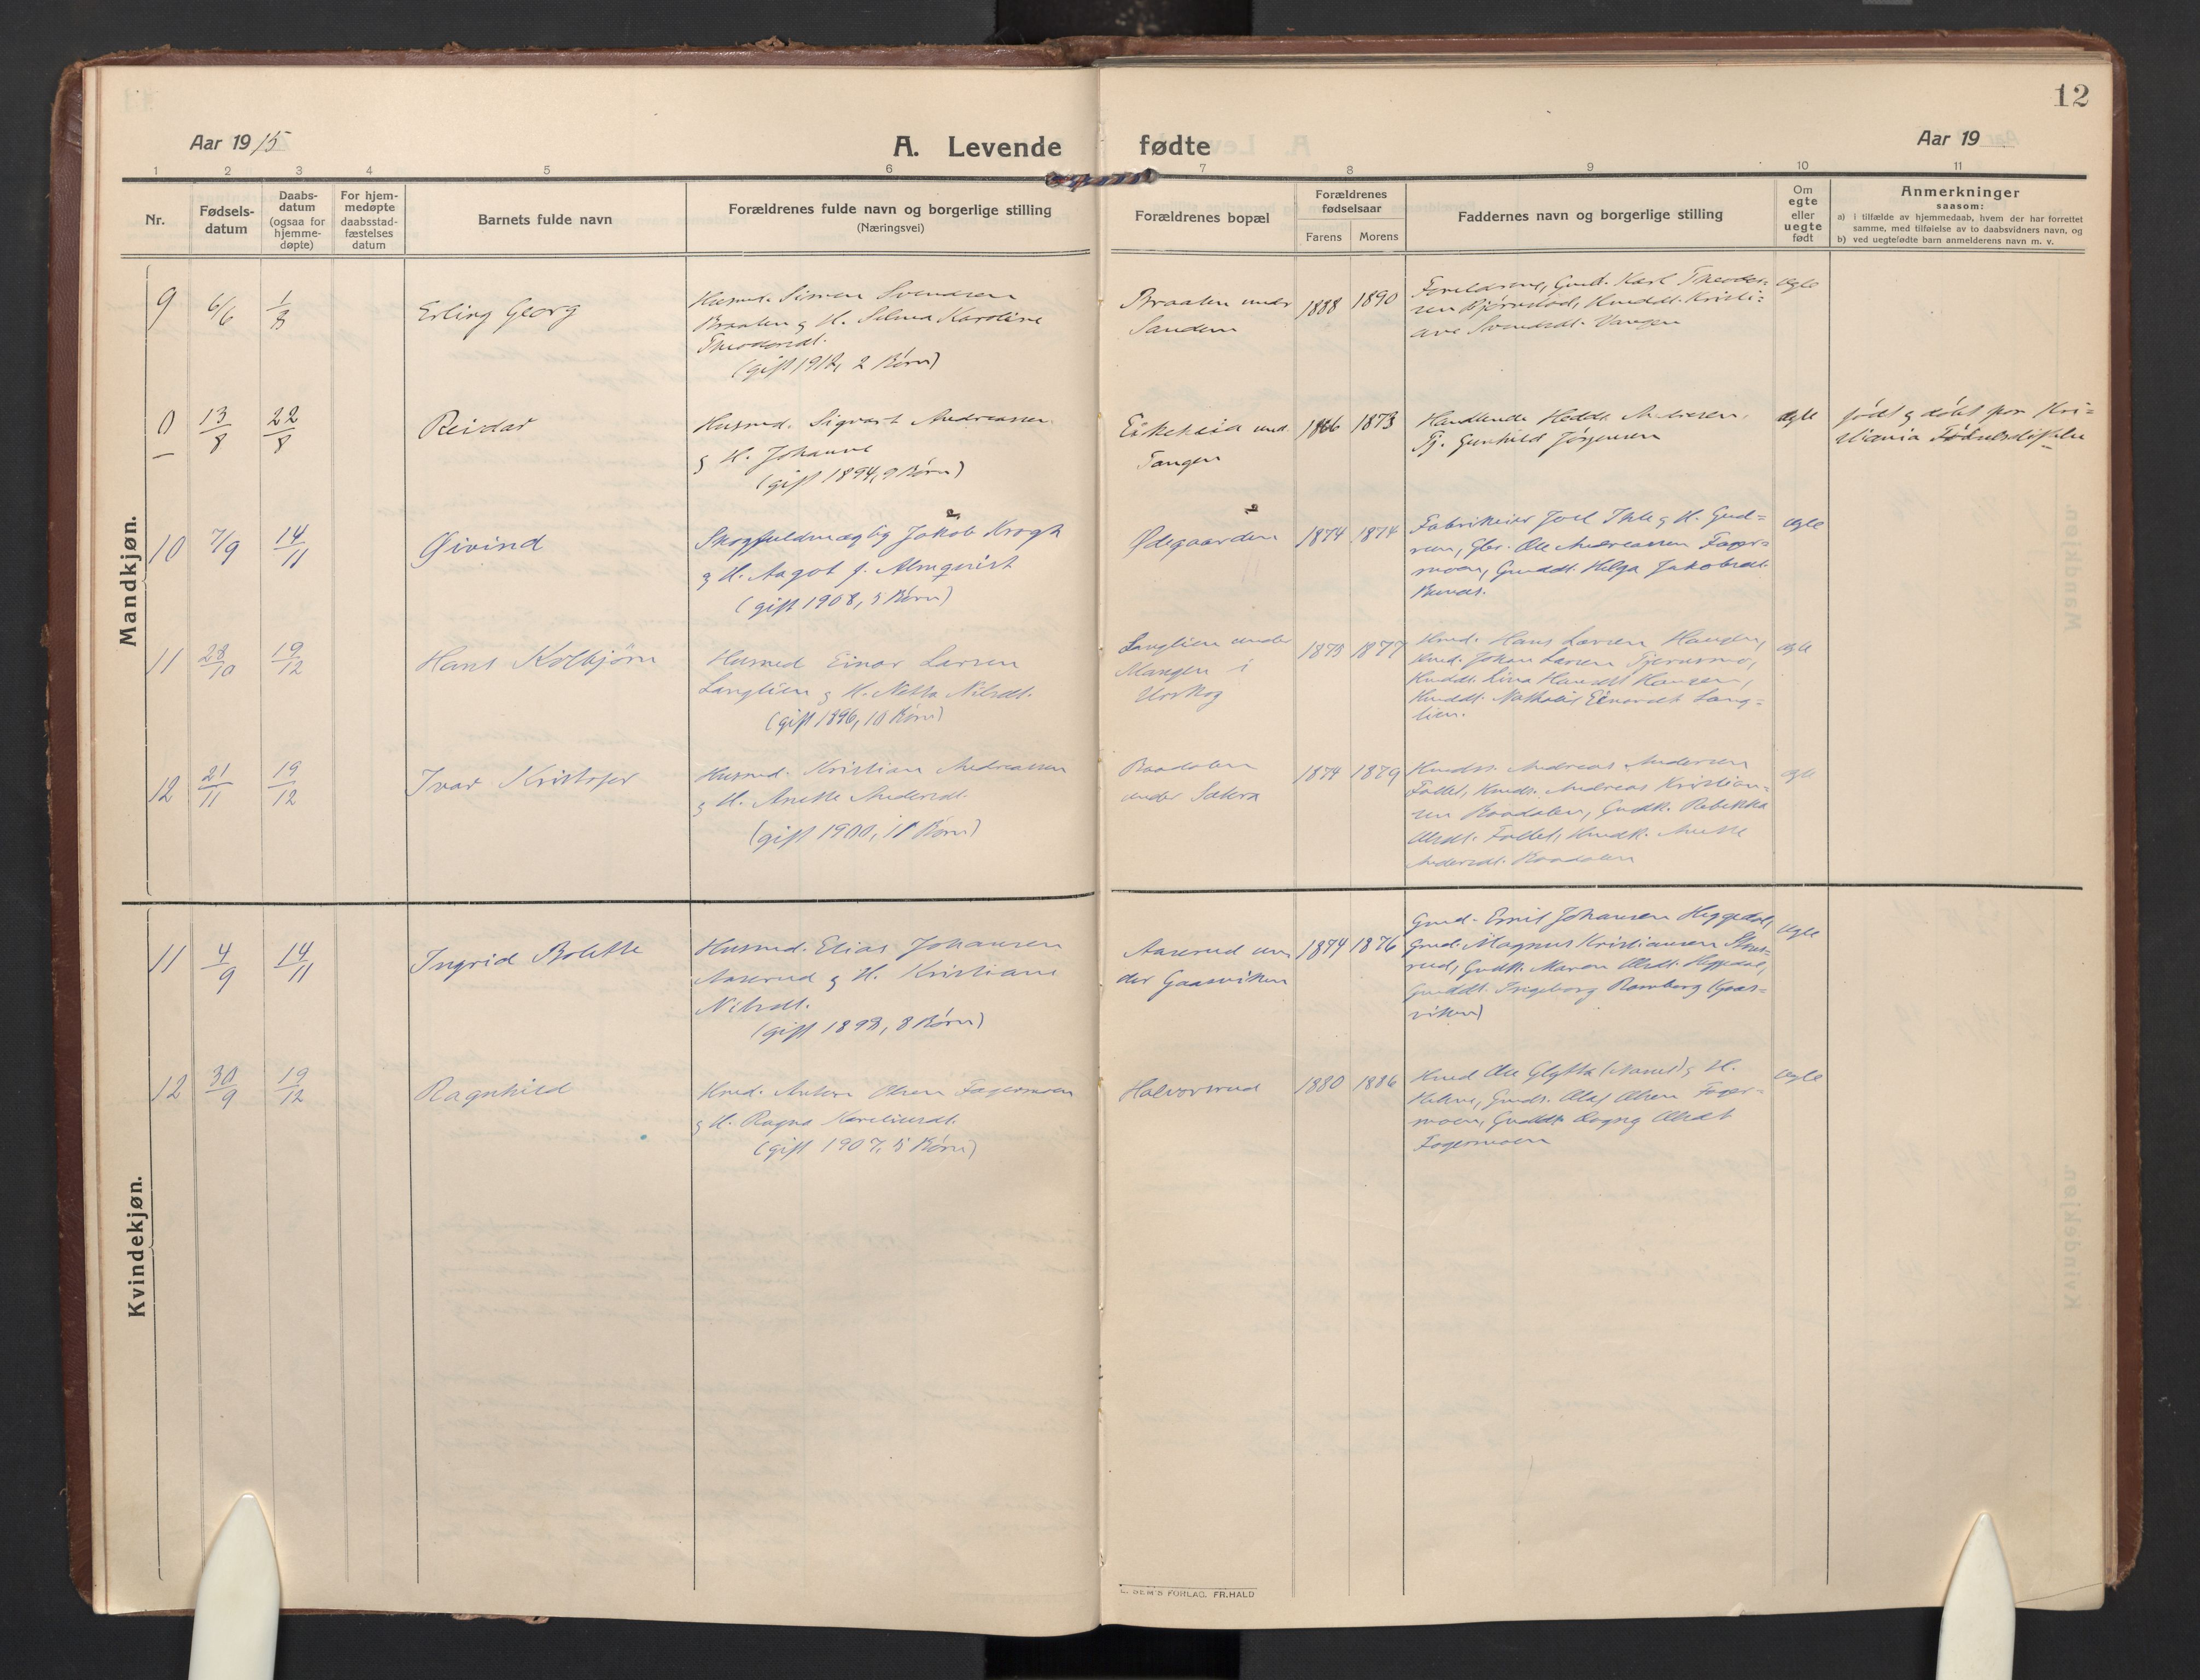 12
Aar 1915
A. Levende fødte
Aar 19
1 2 3 4 5 6 7 8 9 10 11
Nr.
Fødsels-
datum
Daabs-
datum
(ogsaa for
hjemme-
døpte)
For hjem-
medøpte
daabsstad-
fæstelses
datum
Barnets fulde navn
Forældrenes fulde navn og borgerlige stilling
(Næringsvei)
Forældrenes bopæl
Forældrenes
fødselsaar
Farens Morens
Faddernes navn og borgerlige stilling
Om
egte
eller
uegte
født
Anmerkninger
saasom:
a) i tilfælde av hjemmedaab, hvem der har forrettet
samme, med tilføielse av to daabsvidners navn, og
b) ved uegtefødte barn anmelderens navn m. v.
Mandkjøn.
9
6/6
1/8
Erling Georg
Husmd. Simen Svendsen
Braaten & H. Selma Karoline
Theodorsdt.
(gift 1912, 2 Børn)
Braaten under
Sandem
1888 1890
Forældrene, Gmd. Karl Theodor-
sen Bjørnstad, Kmddt. Kristi-
ane Svendsdt. Vangen
egte
0
13/8
22/8
Reidar
Husmd. Sigvart Andreassen
& H. Johanne
(gift 1894, 9 Børn)
Eikeheia und.
Tangen
1866 1873
Handlende Andresen,
Tj. Gunhild Jørgensen
egte
født & døbt paa Kri-
stiania Fødselsstiftelse
10
7/9
14/11
Øivind
Skogfuldmægtig Jakob Krogh
& H. Aagot f. Almquist
(gift 1908, 5 Børn)
Ødegaarden
1874 1874
Fabrikeier Joel Ihle & H. Gud-
run, Gbr. Ole Andreassen Fager-
moen, Gmddt. Helga Jakobsdt.
Bunes.
egte
11
28/10
19/12
Hans Kolbjørn
Husmd Einar Larsen
Langlien & H. Netta Nilsdt.
(gift 1896, 10 Børn)
Langlien under
Mangen i
Urskog
1873 1877
Kmd. Hans Larsen Haugen,
Kmd. Johan Larsen Tjernsmo,
Kmddt. Lina Hansdt Haugen,
Kmddt. Nathalie Einarsdt Lang-
lien.
egte
12
21/11
19/12
Ivar Kristofer
Husmd. Kristian Andreassen
& H. Anette Andersdt.
(gift 1900, 11 Børn)
Baadalen
under Sækra
1874 1879
Kmds. Andreas Andersen
Fallet, Kmds. Andreas Kristian-
sen Baadalen, Gmdk. Rebekka
Olsdt. Fallet, Kmdk. Anette
Andersdt. Baadalen
egte
Kvindekjøn.
11
4/9
14/11
Ingrid Bolette
Husmd. Elias Johansen
Aaserud & H. Kristiane
Nilsdt.
(gift 1898, 8 Børn)
Aaserud un
der Gaasviken
1874 1876
Gmd. Emil Johansen Heggedal,
Gmd. Magnus Kristiansen
rud, Gmdk. Maren Olsdt. Heggedal,
Gmddt. Ingeborg Ramberg (Gaas-
viken)
egte
12
30/9
19/12
Ragnhild
Kmd. Anton Olsen Fagermoen
& H. Ragna Kareliusdt.
(gift 1907, 5 Børn)
Halvorsrud
1880 1886
Kmd Ole & H.
Helene, Gmds. Olaf Olsen Fager-
moen, Gmddt. Dagny Olsdt
Fagermoen
egte
E. SEM'S FORLAG. FR.HALD